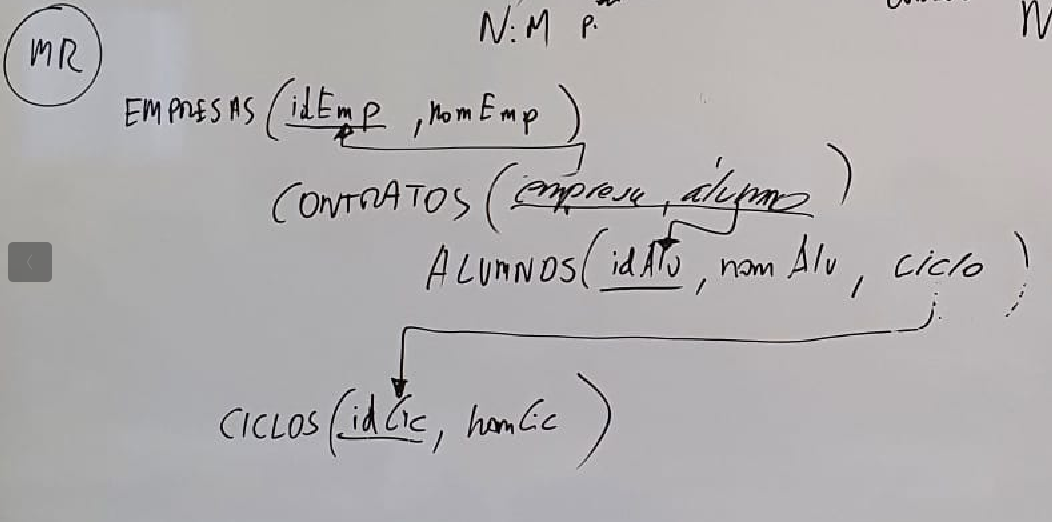 N:M P.
MR
EMPRESAS (idEmp, nomEmp)
CONTRATOS (empresa, alumno)
ALUMNOS (idAlu, nomAlu, ciclo)
CICLOS (idCic, nomCic)